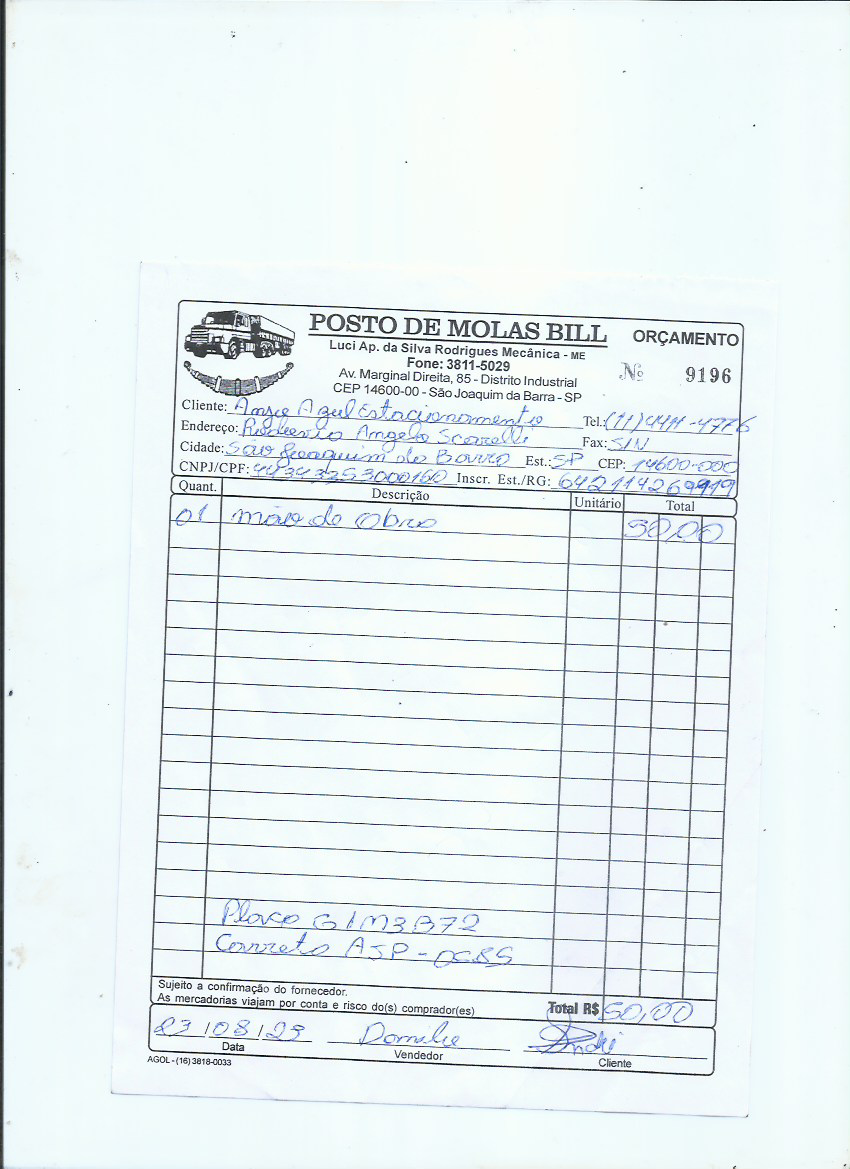 POSTO DE MOLAS BILL
ORÇAMENTO
Luci Ap. da Silva Rodrigues Mecânica - ME
Fone: 3811-5029
Nº 9196
Av. Marginal Direita, 85 - Distrito Industrial
CEP 14600-00 - São Joaquim da Barra - SP
Cliente: Azul Estacionamento Tel.: (11) 4411-4776
Endereço: Rodovia Angelo Fax: S/N
Cidade: São Joaquim da Barra Est.: SP CEP: 14600-000
CNPJ/CPF: Inscr. Est./RG:
Quant. Descrição Unitário Total
01 mão de Obra 50,00
Placa GIM3B72
Carreta
Sujeito a confirmação do fornecedor.
As mercadorias viajam por conta e risco do(s) comprador(es)
Total R$ 50,00
23/08/23
Data Vendedor Cliente
AGOL - (16) 3818-0033